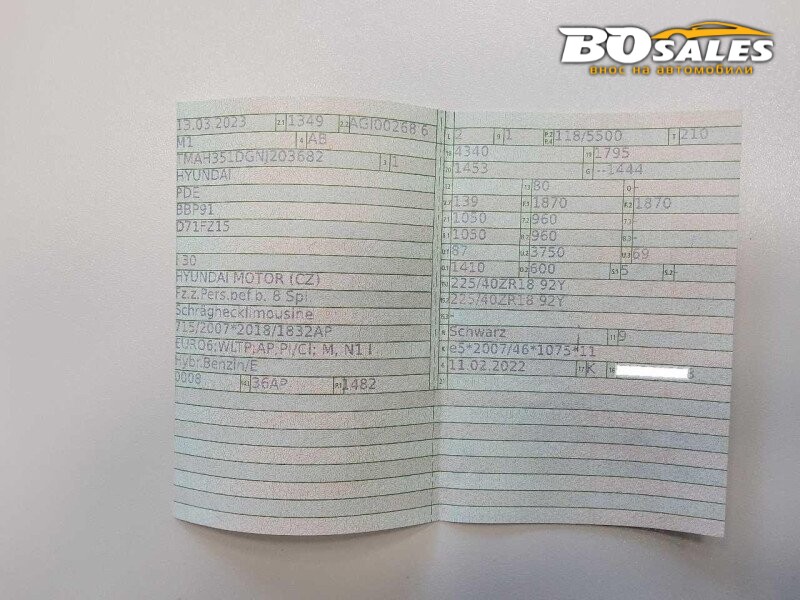 BOSALES
внос на автомобили
13.03.2023 2.1 1349 2.2 AGI00268 6
M1 4 AB
TMAH351DGNJ203682 3 1
HYUNDAI
PDE
BBP91
D71FZ15
I30
HYUNDAI MOTOR (CZ)
Fz.z.Pers.bef.b. 8 Spl
Schräghecklimousine
715/2007*2018/1832AP
EURO6;WLTP;AP,PI/CI; M, N1 I
Hybr.Benzin/E
0008 14.1 36AP P.1 1482
L 2 9 1 P.2 P.4 118/5500 T 210
18 4340 19 1795
20 1453 G --1444
12 - 13 80 Q -
V.7 139 F.1 1870 F.2 1870
7.1 1050 7.2 960 7.3 -
8.1 1050 8.2 960 8.3 -
U.1 87 U.2 3750 U.3 69
O.1 1410 O.2 600 S.1 5 S.2 -
15.1 225/40ZR18 92Y
15.2 225/40ZR18 92Y
15.3 -
R Schwarz 11 9
K e5*2007/46*1075*11
6 11.02.2022 17 K 16
21